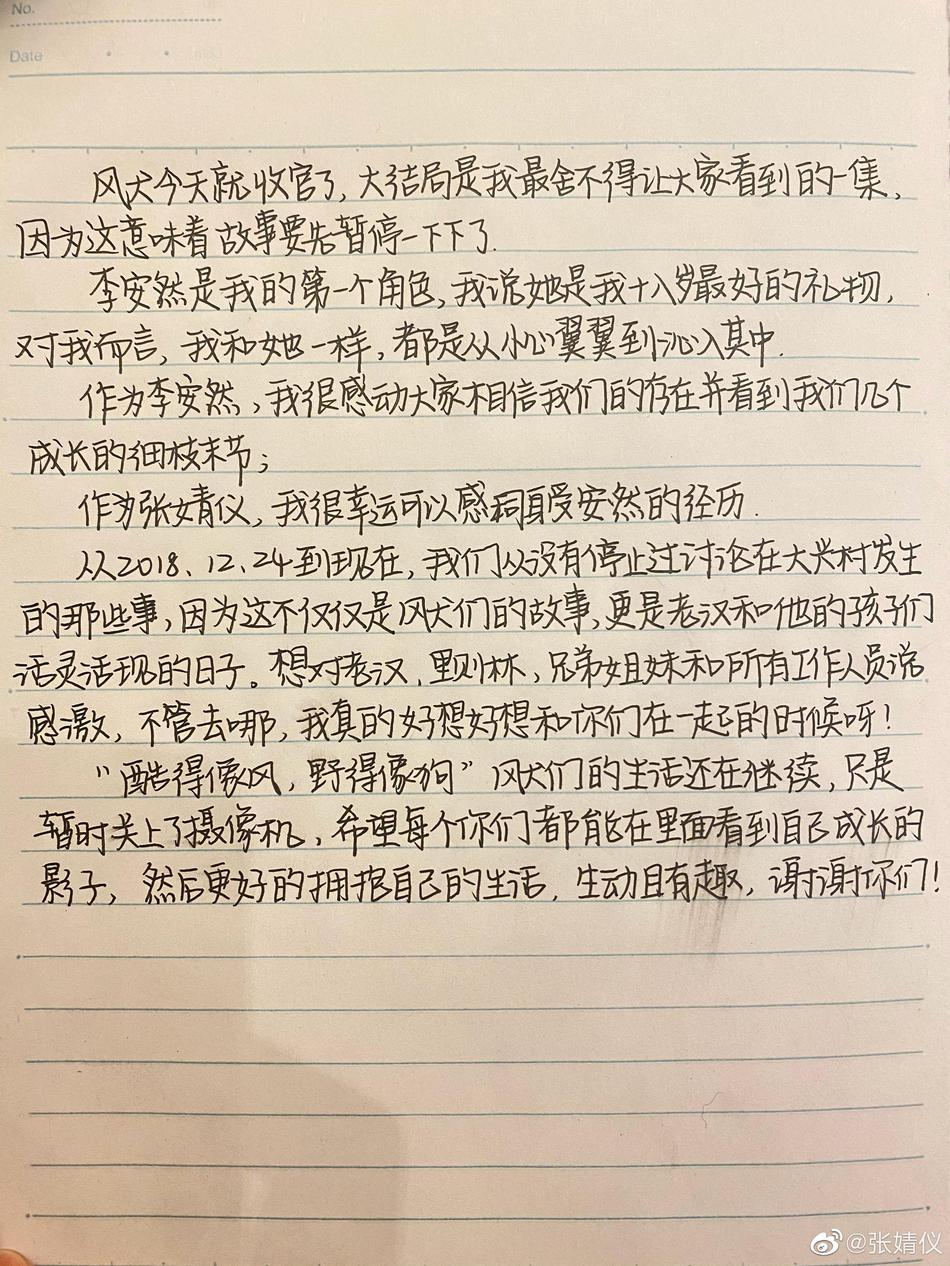 No.
Date
风犬今天就收官了，大结局是我最舍不得让大家看到的一集，
因为这意味着故事要先暂停一下下了.
李安然是我的第一个角色，我说她是我十八岁最好的礼物，
对我而言，我和她一样，都是从小心翼翼到沁入其中.
作为李安然，我很感动大家相信我们的存在并看到我们几个
成长的细枝末节；
作为张婧仪，我很幸运可以感同身受安然的经历.
从2018、12、24到现在，我们从没有停止过讨论在大兴村发生
的那些事，因为这不仅仅是风犬们的故事，更是老汉和他的孩子们
活灵活现的日子。想对老汉，里则林，兄弟姐妹和所有工作人员说
感激，不管去哪，我真的好想好想和你们在一起的时候呀！
“酷得像风，野得像狗”风犬们的生活还在继续，只是
暂时关上了摄像机，希望每个你们都能在里面看到自己成长的
影子，然后更好的拥抱自己的生活，生动且有趣，谢谢你们！
@张婧仪